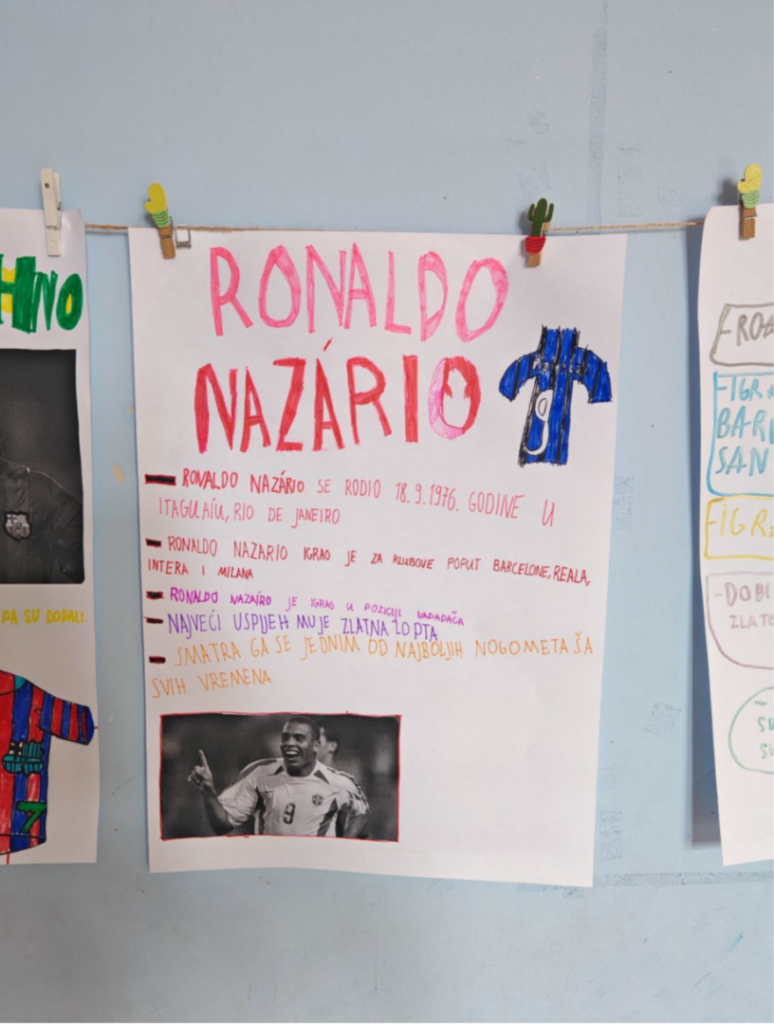 HNO
PA SU DODALI
7
RONALDO
NAZÁRIO
RONALDO NAZÁRIO SE RODIO 18.9.1976. GODINE U
ITAGUAÍU, RIO DE JANEIRO
RONALDO NAZARIO IGRAO JE ZA KLUBOVE POPUT BARCELONE, REALA,
INTERA I MILANA
RONALDO NAZAÍRO JE IGRAO U POZICIJI NAPADAČA
NAJVEĆI USPIJEH MU JE ZLATNA LOPTA
SMATRA GA SE JEDNIM OD NAJBOLJIH NOGOMETAŠA
SVIH VREMENA
9
-ROĐ
-IGRA
BAR
SAN
-IGRA
-DOBI
ZLATO
-
SU
SV